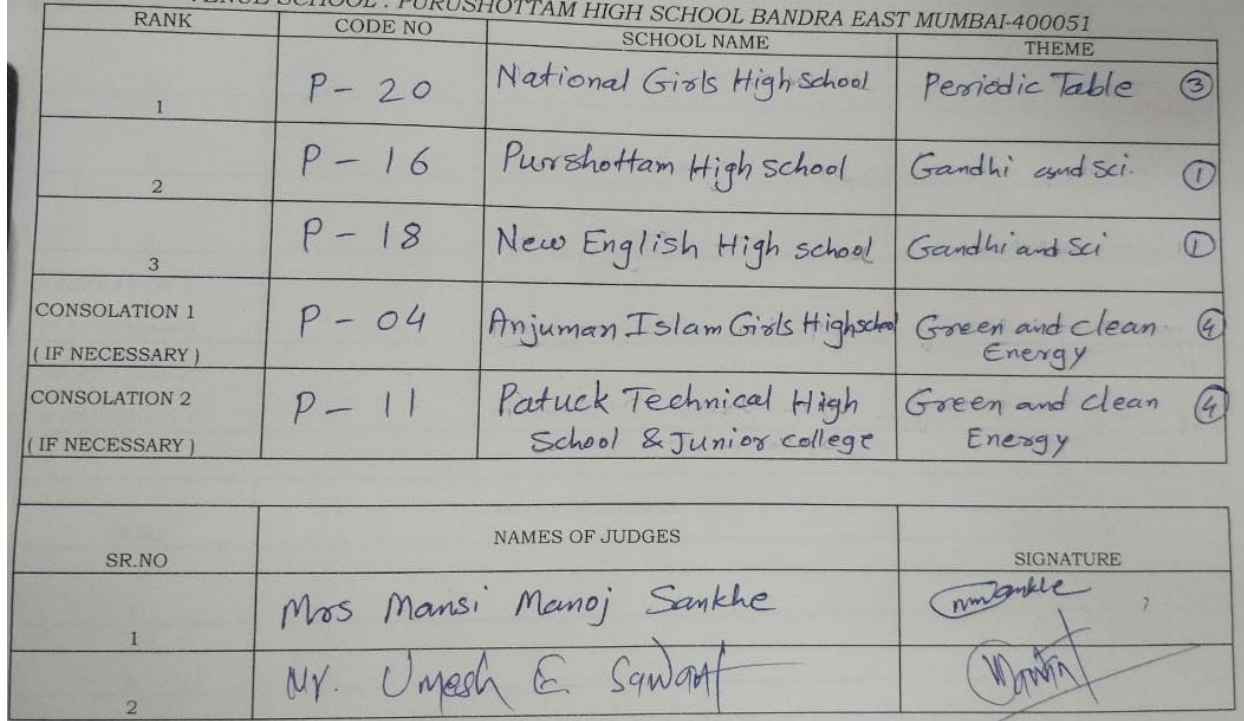 VENUE SCHOOL : PURUSHOTTAM HIGH SCHOOL BANDRA EAST MUMBAI-400051
RANK CODE NO SCHOOL NAME THEME
1 P - 20 National Girls High School Periodic Table ③
2 P - 16 Purshottam High School Gandhi and Sci. ①
3 P - 18 New English High school Gandhi and Sci ①
CONSOLATION 1
( IF NECESSARY ) P - 04 Anjuman Islam Girls Highschool Green and clean ④
Energy
CONSOLATION 2
( IF NECESSARY ) P - 11 Patuck Technical High Green and clean ④
School & Junior college Energy
SR.NO NAMES OF JUDGES SIGNATURE
1 Mrs Mansi Manoj Sankhe
2 Mr. Umesh E. Sawant